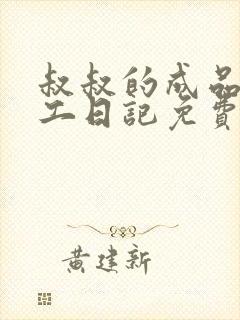 叔叔的成品
工日記免費
黃建新